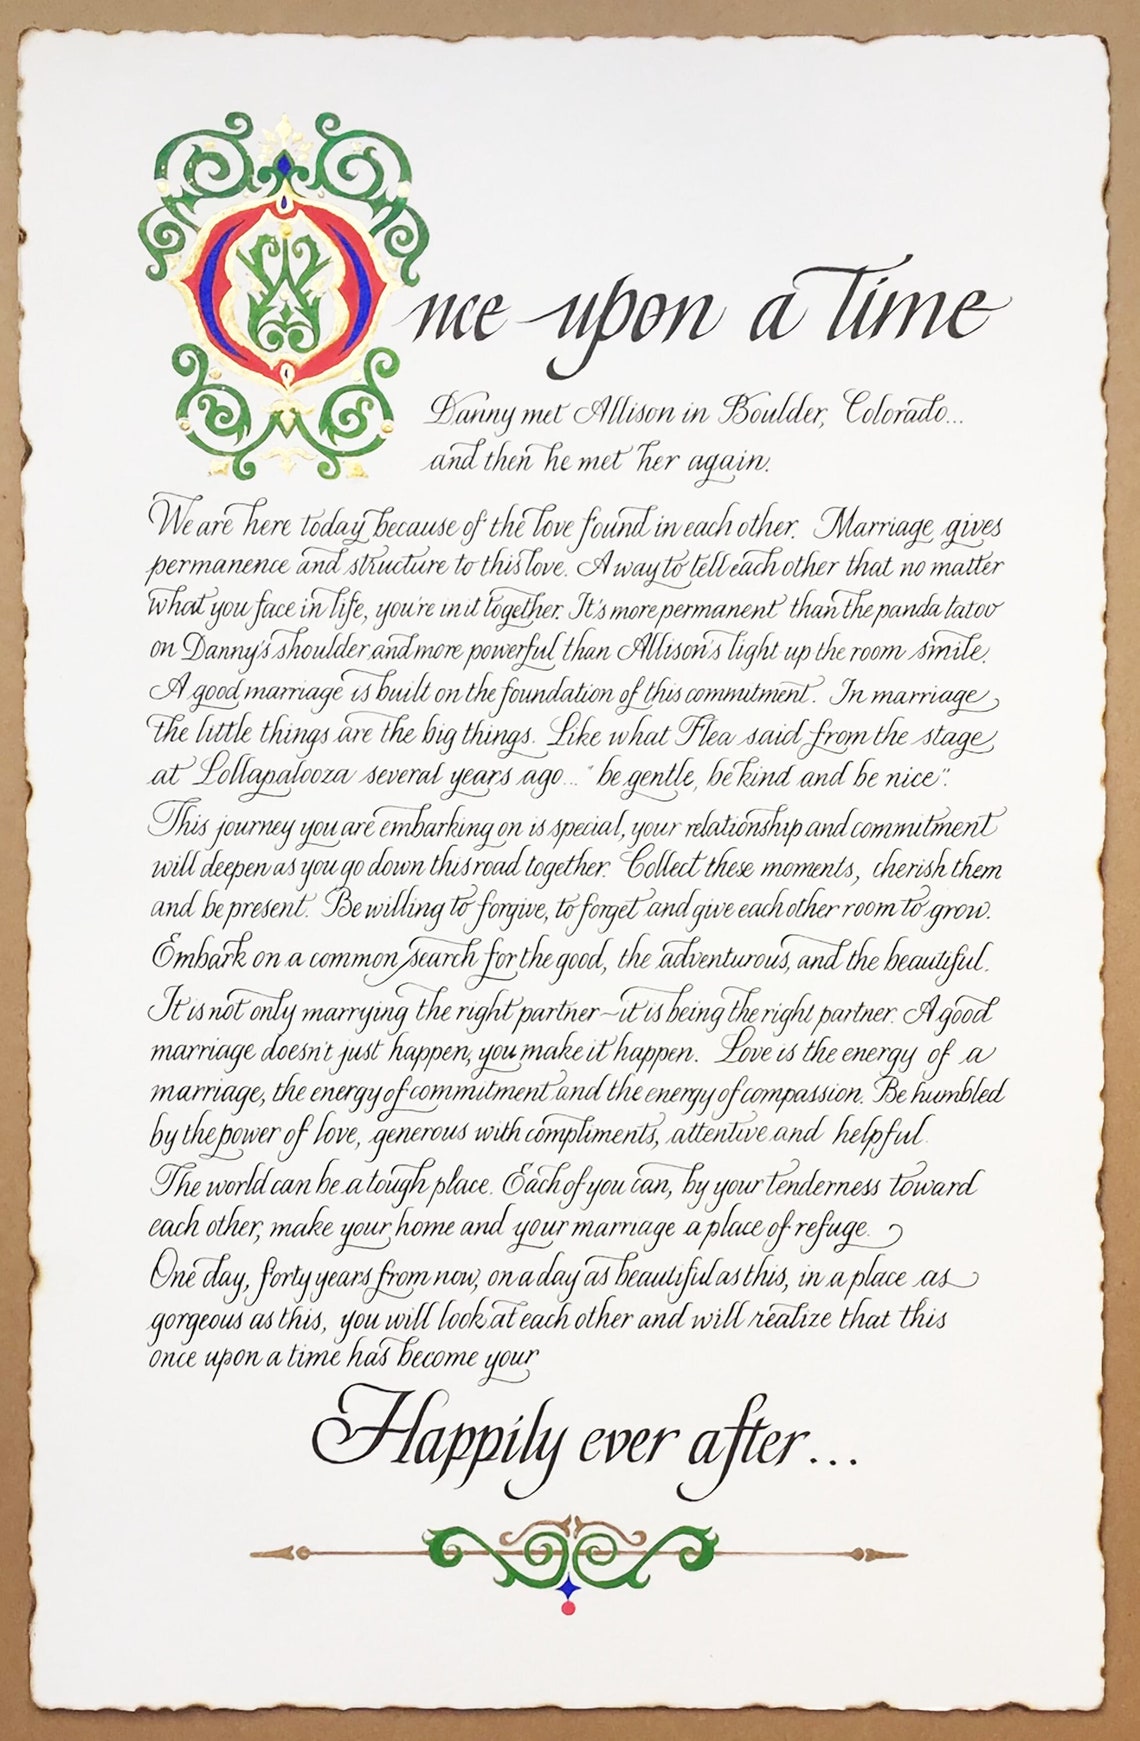 Once upon a time
Danny met Allison in Boulder, Colorado...
and then he met her again.
We are here today because of the love found in each other. Marriage gives
permanence and structure to this love. A way to tell each other that no matter
what you face in life, you're in it together. It's more permanent than the panda tatoo
on Danny's shoulder and more powerful than Allison's light up the room smile.
A good marriage is built on the foundation of this commitment. In marriage
the little things are the big things. Like what Flea said from the stage
at Lollapalooza several years ago... "be gentle, be kind and be nice".
This journey you are embarking on is special, your relationship and commitment
will deepen as you go down this road together. Collect these moments, cherish them
and be present. Be willing to forgive, to forget and give each other room to grow.
Embark on a common search for the good, the adventurous, and the beautiful.
It is not only marrying the right partner—it is being the right partner. A good
marriage doesn't just happen, you make it happen. Love is the energy of a
marriage, the energy of commitment and the energy of compassion. Be humbled
by the power of love, generous with compliments, attentive and helpful.
The world can be a tough place. Each of you can, by your tenderness toward
each other, make your home and your marriage a place of refuge.
One day, forty years from now, on a day as beautiful as this, in a place as
gorgeous as this, you will look at each other and will realize that this
once upon a time has become your
Happily ever after...